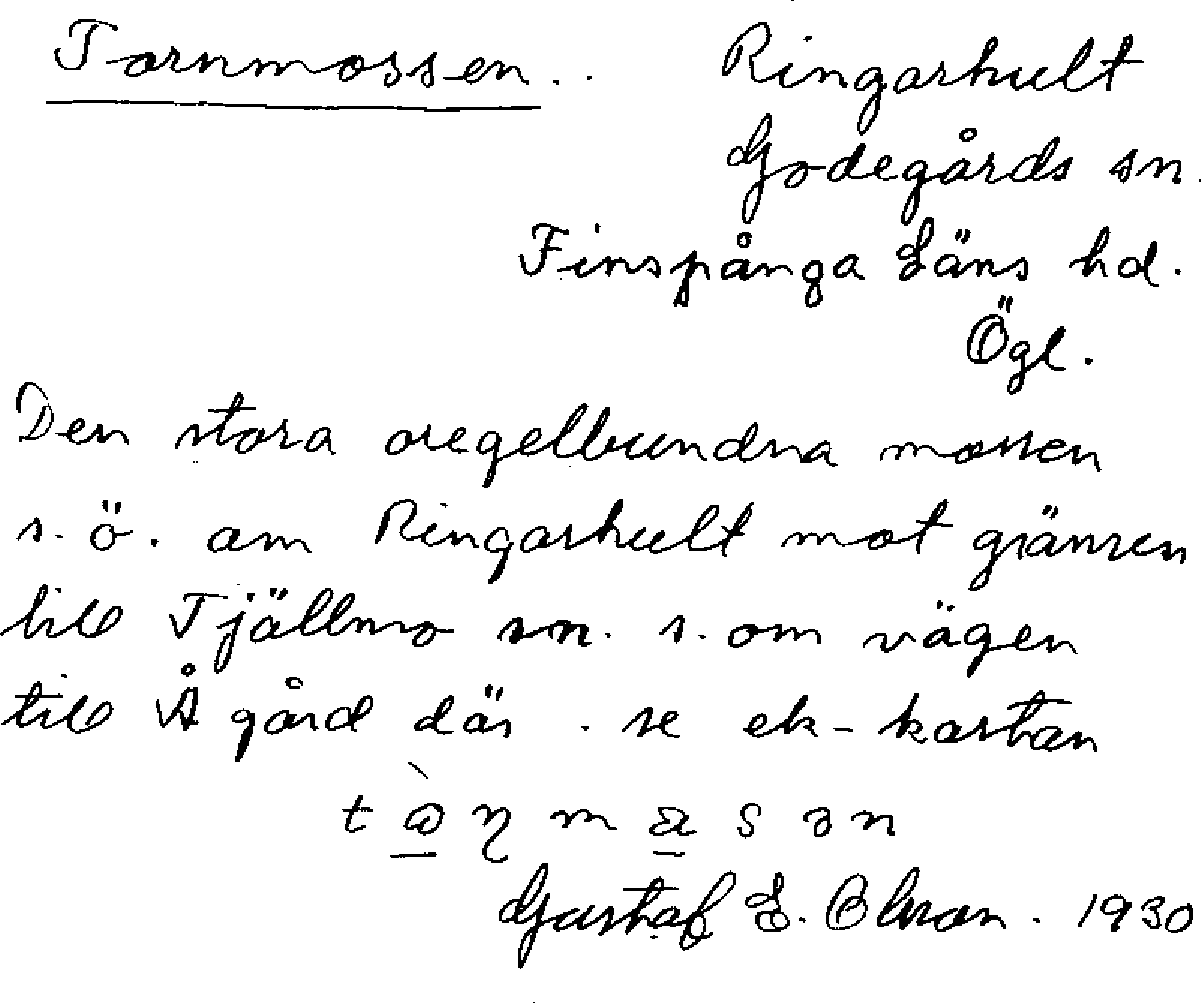 Tornmossen.. Ringarhult
Godegårds sn.
Finspånga Läns hd.
Ögl.
Den stora oregelbundna mossen
s. ö. om Ringarhult mot gränsen
till Tjällmo sn. s. om vägen
till Å gård där . se ek-kartan
Gustaf E. Olsson . 1930